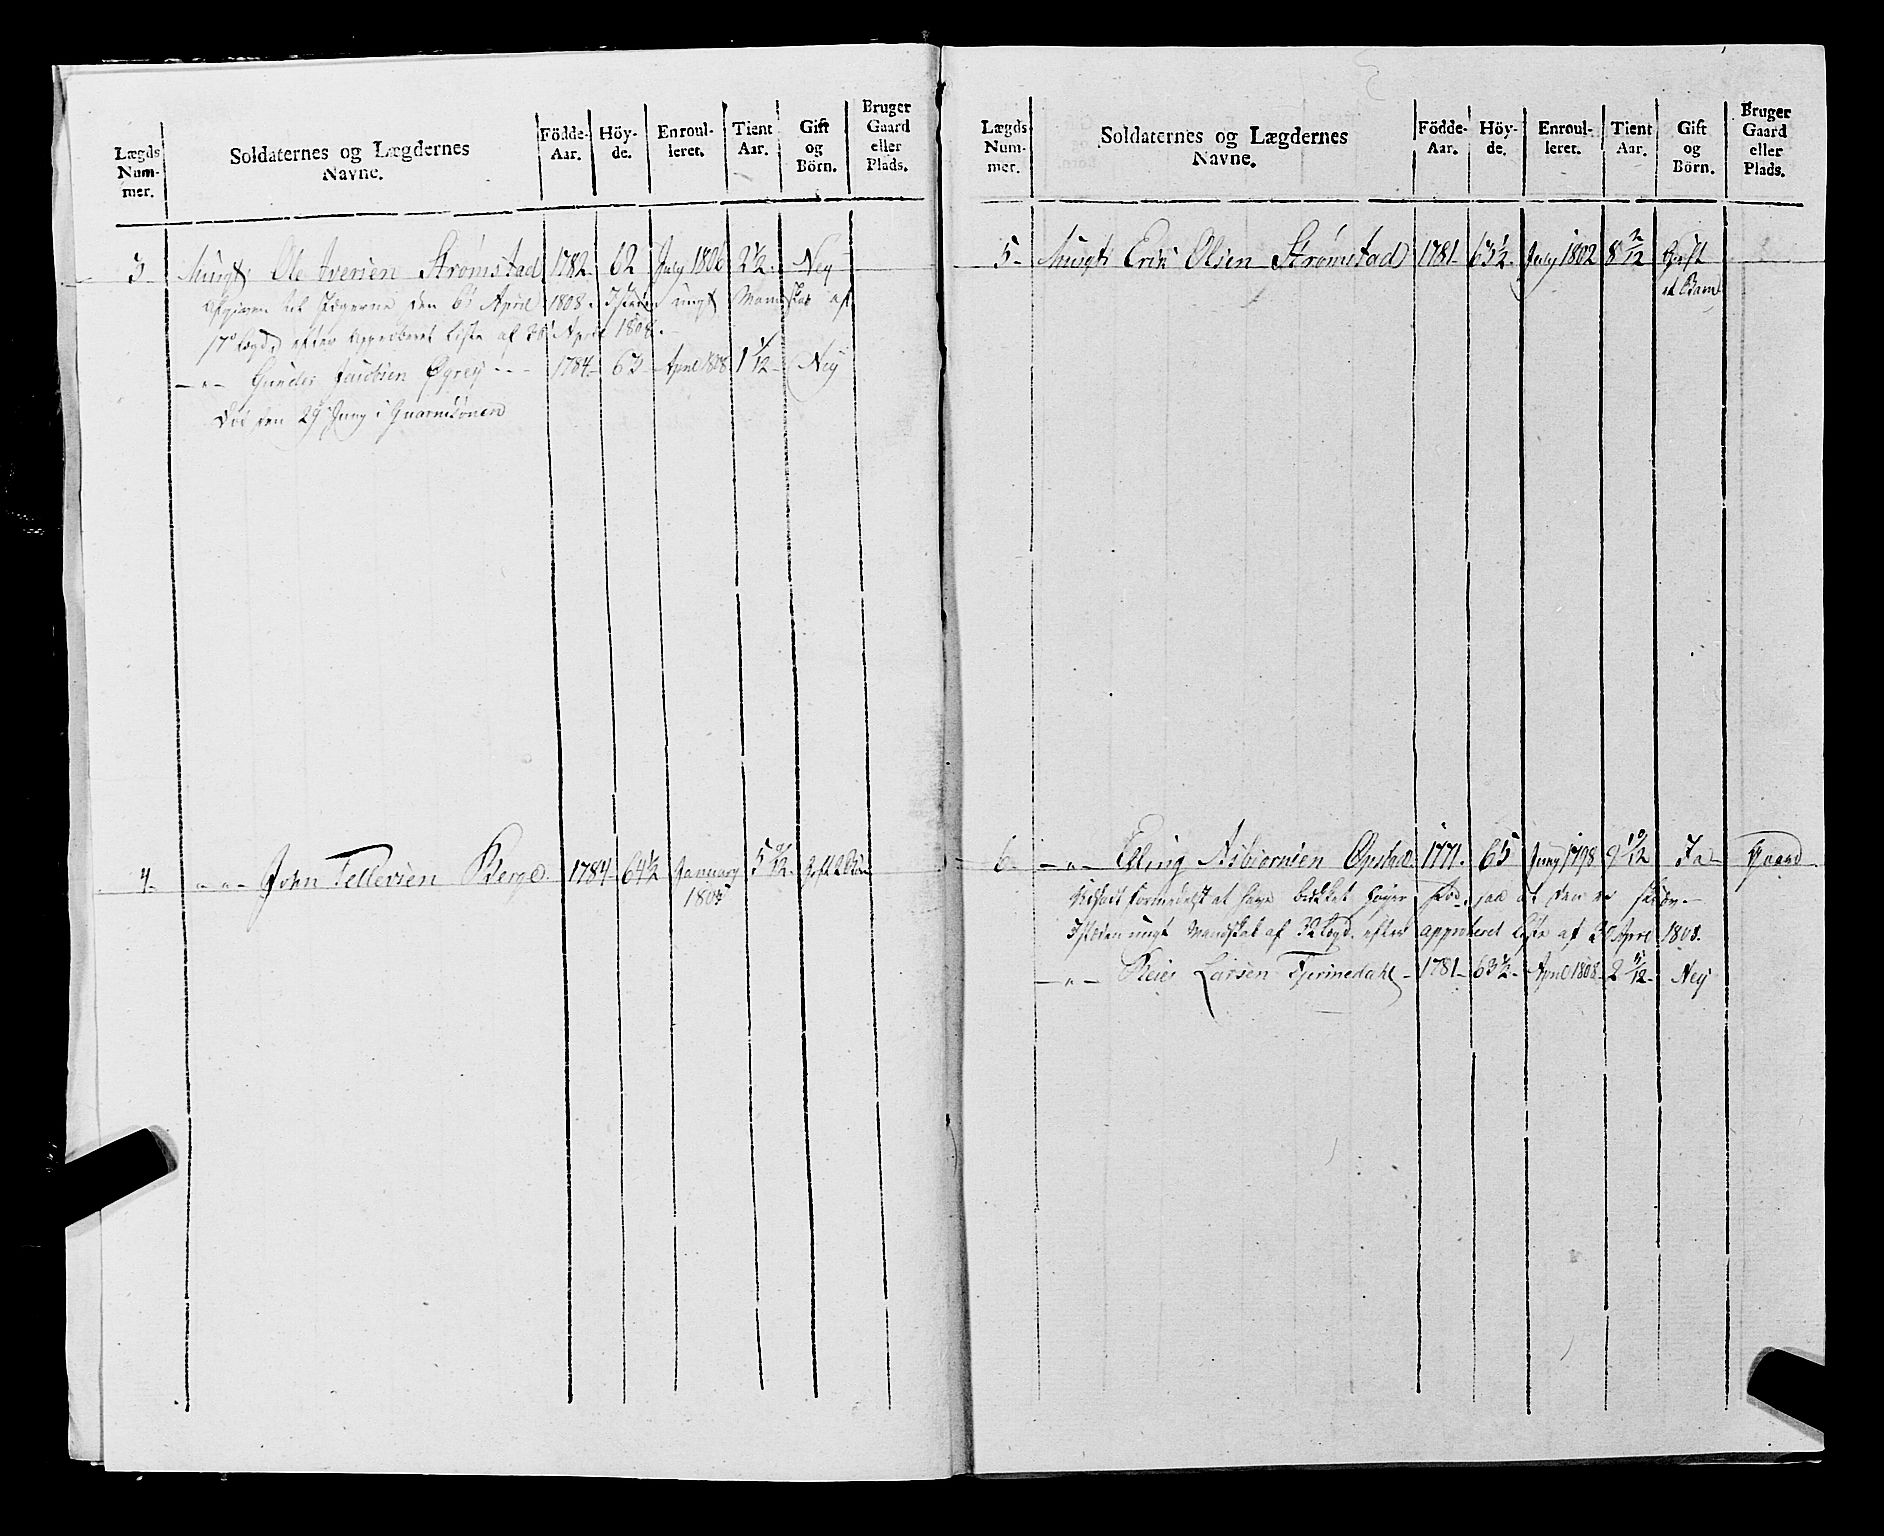 Lægds Num- mer. Soldaternes og Lægdernes Navne. Födde- Aar. Höy- de. Enroul- leret. Tient Aar. Gift og Börn. Bruger Gaard eller Plads.
3 Musqt. Ole Iversen Strømstad 1782. 62 July 1806 2 1/2. Ney
Afgiven til Jægerne den 6 April 1808. Isteden ungt Mandskab af
17 Lægd efter approberet Liste af 30 April 1808.
— " — Gunder Jacobsen Øyrey - - - 1784 - 63 - April 1808 1 1/12 - Ney
Död den 29 Juny i Guarnisonen
4. " " - John Tellevsen Berge. 1784 64 1/2 January 5 9/12. Gift 2 Börn
1805
Lægds Num- mer. Soldaternes og Lægdernes Navne. Födde- Aar. Höy- de. Enroul- leret. Tient Aar. Gift og Börn. Bruger Gaard eller Plads.
5 - Musqt. Erik Olsen Strømstad 1781 - 63 1/2. July 1802 8 2/12 Gift
et Barn
6. — " — Elling Asbiörnsen Opstad. 1771. 65 Juny 1798 9 10/12 Ja - Gaard.
formedelst at have saa at den er
Isteden ungt Mandskab af 32 Lægd. efter approberet Liste af 30 April 1808.
— " — Reier Larsen Tierinedahl - 1781 - 63 1/2 - April 1808 - 2 /12 - Ney